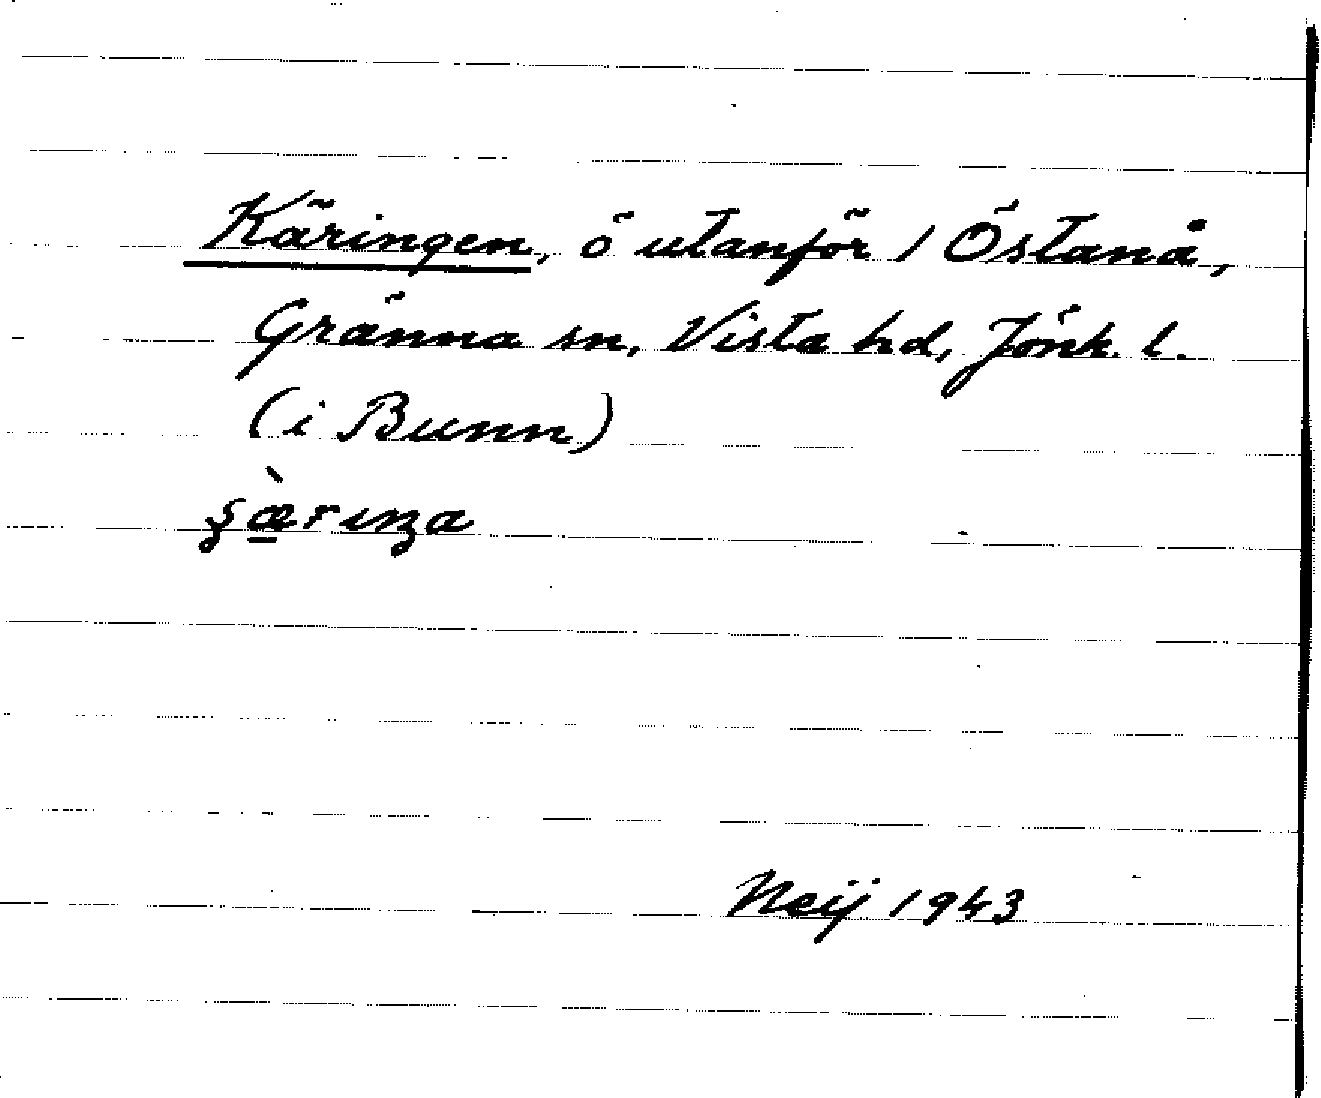 Käringen, ö utanför / Östanå,
Gränna sn, Vista hd, Jönk. l.
(i Bunn)
Neij 1943